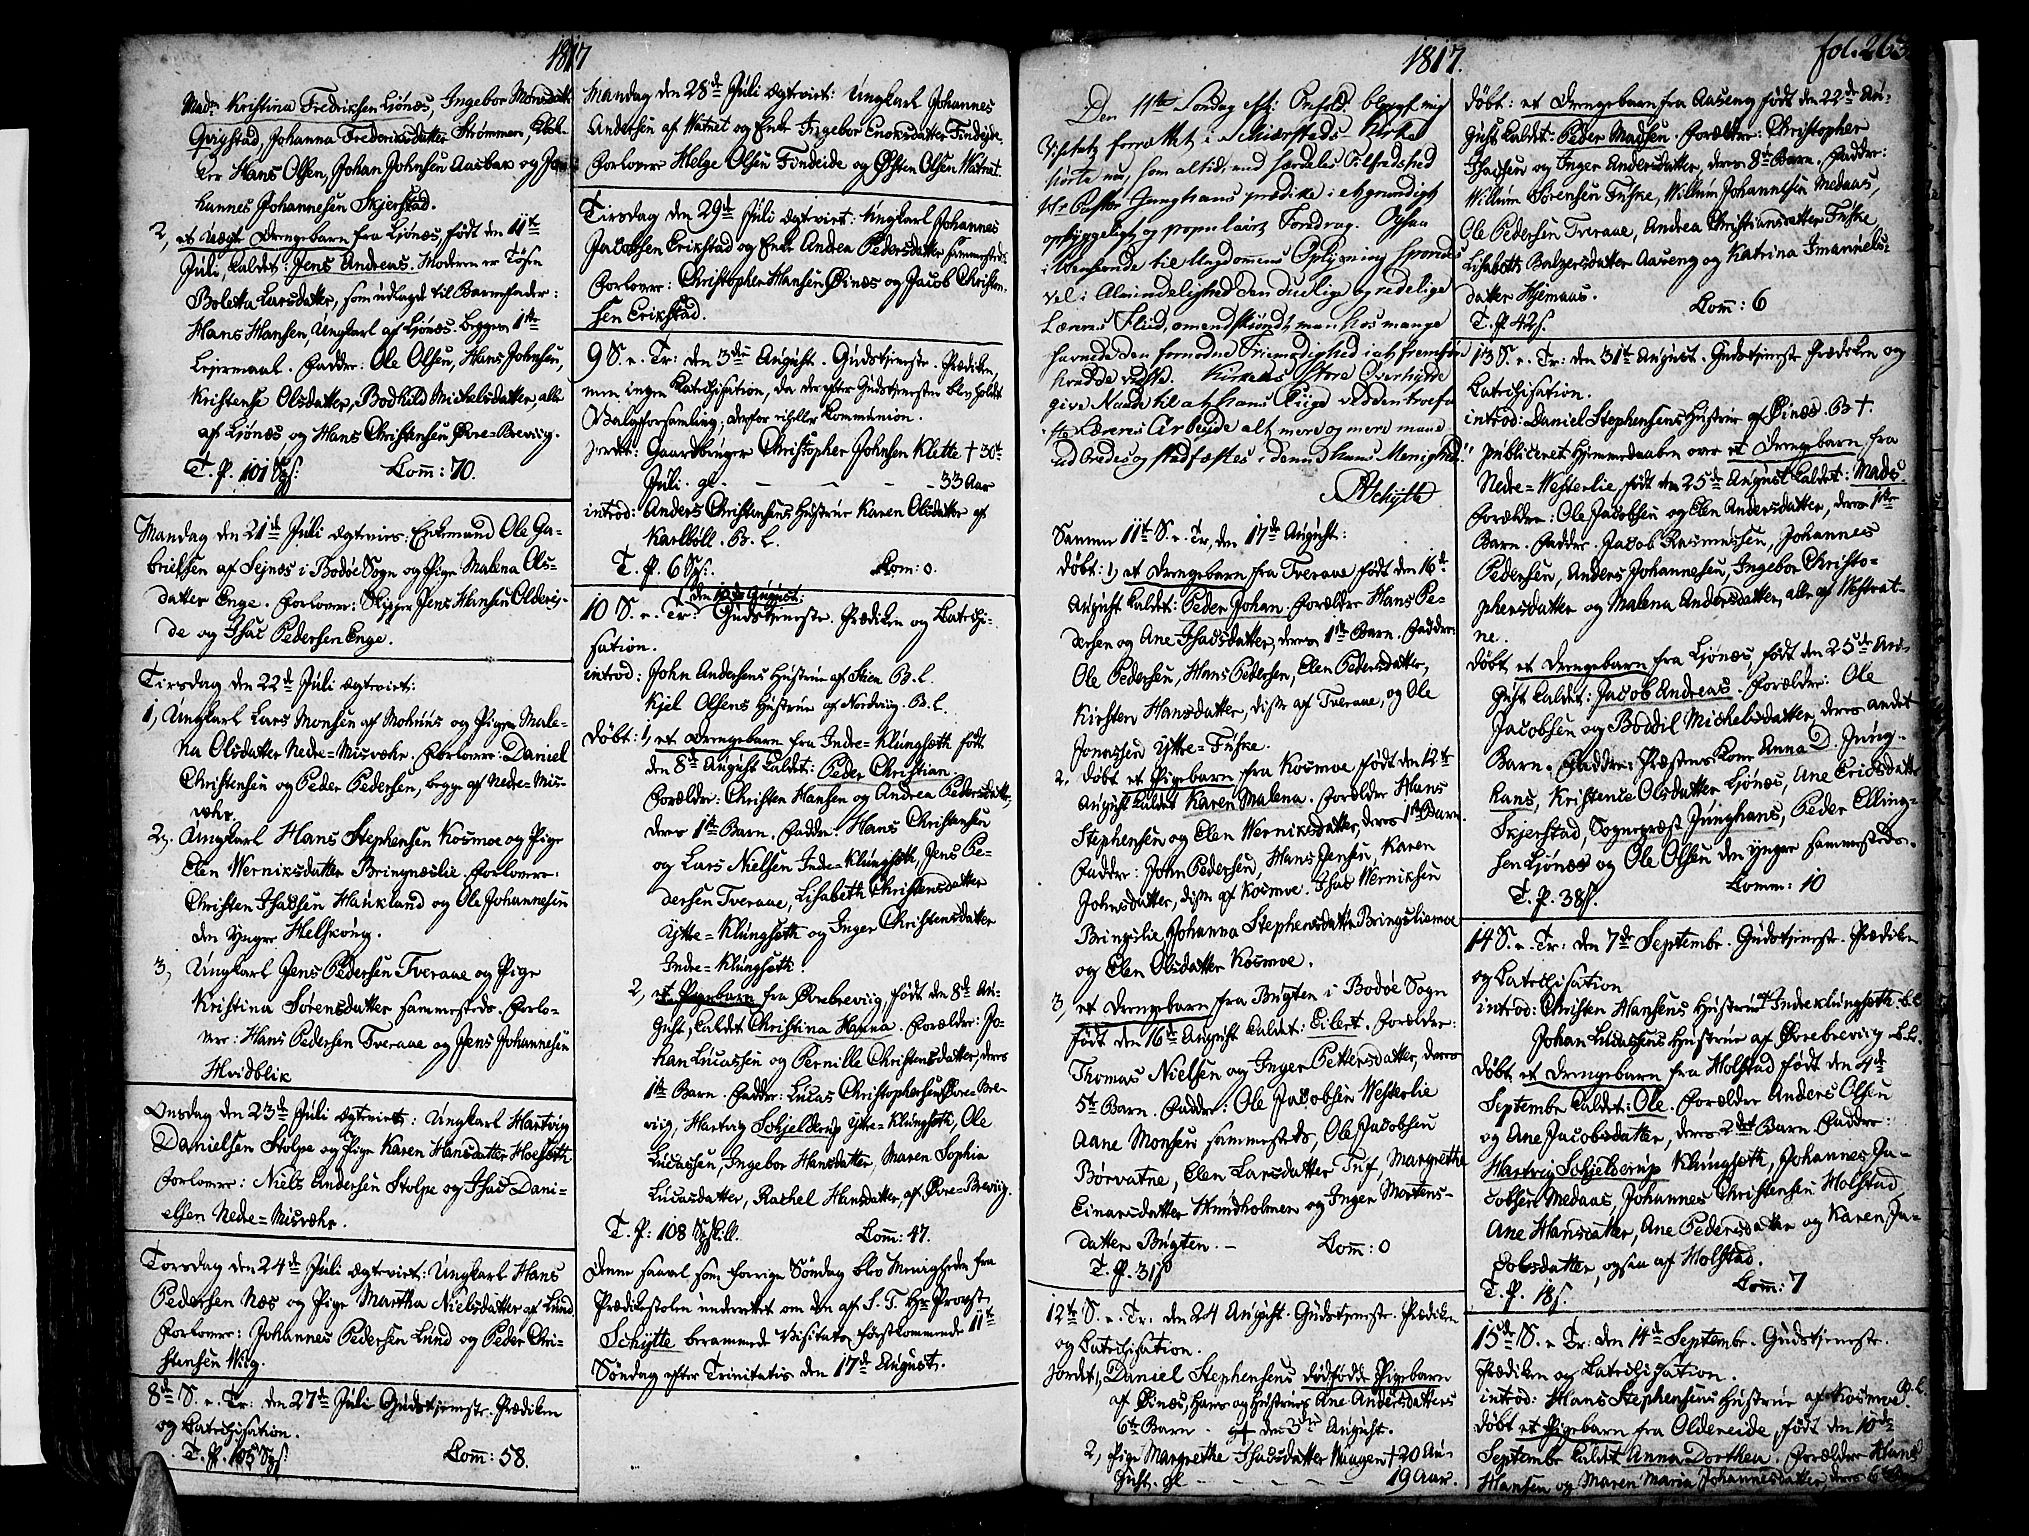 1817
Madm Kristina Fredriksen Ljönæs, Ingebor Monsdatter
Gjøgstad, Johanna Frederiksdatter Strømmen, Klok-
ker Hans Olsen, Johan Johnsen Aasbak og Jo-
hannes Johannesen Skjerstad.
2, et uægte Drengebarn fra Ljönæs, født den 11te
Juli, kaldet: Jens Andreas. Moderen er Tösen
Boletta Larsdatter, som udlagde til Barnefader:
Hans Hansen, Ungkarl af Ljönæs. begges 1ste
Lejermaal. Faddre: Ole Olsen, Hans Johnsen,
Kristense Olsdatter, Bodhild Michelsdatter, alle
af Ljönæs og Hans Christensen Øvre-Brevig.
T. P. 101 Sk. Comm: 70.
Mandag den 21de Juli ægtevies. Enkemand Ole Ga-
brielsen af Sejnæs i Bodøe Sogn og Pige Malena Ols-
datter Enge. Forlovere: Skipper Jens Hansen Olderei-
de og Isac Pedersen Enge.
Tirsdag den 22de Juli ægteviet:
1, Ungkarl Lars Monsen af Mohuus og Pigen Male-
na Olsdatter Nedre-Misvær. Forlovere: Daniel
Christensen og Peder Pedersen, begge af Nedre-Mis-
vær.
2, Ungkarl Hans Stephensen Kosmoe og Pige
Elen Werniksdatter Bringneslie. Forlovere:
Christen Isachsen Haukland og Ole Johannesen
den yngre Helskoug.
3, Ungkarl Jens Pedersen Tveraae og Pige
Kristina Sørensdatter sammesteds. Forlo-
vere: Hans Pedersen Tveraae og Jens Johannesen
Hvidblik
Onsdag den 23de Juli ægteviet: Ungkarl Hartvig
Danielsen Stolpe og Pige Karen Hansdatter Hoelseth
Forlovere: Niels Andersen Stolpe og Isac Dani-
elsen Nedre-Misvær.
Torsdag den 24de Juli ægteviet: Ungkarl Hans
Pedersen Næs og Pige Martha Nielsdatter af Lund
Forlovere: Johannes Pedersen Lund og Peder Chri-
stensen Wiig.
8de S. e. Tr. den 27de Juli Gudstjeneste. Prædiken
og Catechisation.
T. P. 105 Sk. Comm: 58.
Mandag den 28de Juli ægteviet: Ungkarl Johannes
Andersen af Watnet og Enke Ingebor Enoksdatter Findeide.
Forlovere Helge Olsen Findeide og Østen Olsen Watnet.
Tirsdag den 29de Juli ægteviet: Ungkarl Johannes
Jacobsen Erikstad og Enke Andrea Pedersdatter sammesteds.
Forlovere: Christopher Hansen Øinæs og Jacob Christen-
sen Erikstad.
9 S. e. Tr: den 3die August. Gudstjeneste. Prædiken,
men ingen Catechisation, da derefter Gudstjenesten blev holdt
Valgforsamling; derfor ei heller Communion.
Jordet: Gaardbruger Christopher Johnsen Klette † 30te
Juli. gl. - - - - 33 Aar
introd: Anders Christensens Hustrue Karen Olsdatter af
Karlböll. B. L.
T. P. 6 Sk. Com: 0.
den 10de August:
10 S. e. Tr: Gudstjeneste. Prædiken og Catechi-
sation.
introd: John Andersens Hustrue af Skien B. L.
Kjel Olsens Hustrue af Nordvig. B. L.
Döbt: 1, et Drengebarn fra Indre-Klungseth født
den 8de August kaldet: Peder Christian.
Forælder: Christen Hansen og Andrea Pedersdatter,
deres 1ste Barn. Faddr: Hans Christensen
og Lars Nielsen Indre-Klungseth, Jens Pe-
dersen Tveraae, Lisabeth Christensdatter
Ytre-Klungseth og Inger Christensdatter
Indre-Klungseth.
2, et Pigebarn fra Øvrebrevig, født den 8de Au-
gust, kaldet Christina Hanna. Forælder: Jo-
han Lucassen og Pernille Christensdatter, deres
1ste Barn. Faddr: Lucas Christophersen Øvre-Bre-
vig, Hartvig Schjelderup Ytre-Klungseth, Ole
Lucassen, Ingebor Hansdatter, Maren Sophia
Lucasdatter, Rachel Hansdatter, af Øvre-Brevig.
T. P: 108 Skill. Comm: 47.
Denne saavel som forrige Søndag blev Menigheden fra
Prædikestolen underrettet om den af S. T. Hr Provst
Schytte berammede Visitats førstkommende 11te
Søndag efter Trinitatis den 17de August.
1817. fol. 263.
Den 11te Søndag eft: Trefold: blev af mig
Visitats forrettet i Skierstads Kirke
hørte nu, som altid, med særdeles Tilfredshed
Hr Pastor Junghans prædike i et grundigt
opbyggeligt og populairt Foredrag. Ogsaa
i Henseende til Ungdommens Oplysning spores
vel i Almindelighed den duelige og redelige
Lærers Fliid, omendskiøndt man hos mange
savnede den fornødne Friemodighed i at fremføre
hvad de vidste. Kirkens store Overhyrde
give Naade til at hans Riige ved den troefa-
ste Lærers Arbeyde alt mere og mere maae
udbredes og stadfæstes i denne hans Menighed!
Schytte
Samme 11te S. e. Tr, den 17de August:
Döbt: 1, et Drengebarn fra Tveraae født den 16de
August kaldet: Peder Johan. Forælder Hans Pe-
dersen og Ane Isachsdatter, deres 1ste Barn. Faddre:
Ole Pedersen, Hans Pedersen, Elen Pedersdatter,
Kirsten Hansdatter, disse af Tveraae, og Ole
Jonassen Ytre-Fuske.
2, döbt et Pigebarn fra Kosmoe født den 12te
August kaldet Karen Malena. Forælder Hans
Stephensen og Elen Werniksdatter, deres 1ste Barn.
Faddr: John Pedersen, Hans Jensen, Karen
Johnsdatter, disse af Kosmoe. Isac Werniksen
Bringslie, Johanna Stephensdatter Bringsliemoe
og Elen Olsdatter Kosmoe.
3, et Drengebarn fra Bugten i Bodøe Sogn
født den 16de August kaldet: Eilert. Forælder:
Thomas Nielsen og Inger Pettersdatter, deres
5te Barn. Faddr: Ole Jacobsen Westerlie
Aane Monsen sammesteds, Ole Jacobsen
Børvatne, Elen Larsdatter Tuf, Margrethe
Einarsdatter Hundholmen og Inger Mortens-
datter Bugten. - Com: 0
T. P. 31 s
12te S. e. Tr: den 24 August. Gudstjeneste. Prædiken
og Catechisation.
Jordet: 1, Daniel Stephensens dødfødde Pigebarn
af Øinæs, hans og Hustrues Ane Andersdatters
6te Barn. † den 3die August.
2, Pige Margrethe Isachsdatter Waagen † 20 Au-
gust. gl. - - - - 19 Aar.
döbt: et Drengebarn fra Aaseng født den 22de Au-
gust kaldet: Peder Madsen. Forælder: Christopher
Isachsen og Inger Andersdatter, deres 8de Barn. Faddr:
Willum Sørensen Fuske, Willum Johannesen Medaas,
Ole Pedersen Tveraae, Andrea Christiansdatter Fuske,
Lisabeth Baltzersdatter Aaseng og Katrina Imanuels-
datter Hjemaas. Com: 6
T. P. 42 s.
13 S. e. Tr: den 31te August. Gudstjeneste Prædiken og
Catechisation.
introd: Daniel Stephensens Hustrue af Øinæs. B †.
publiceret Hjemmedaaben over et Drengebarn fra
Nedre-Westerlie, født den 25de August kaldet: Mads.
Forælder: Ole Jacobsen og Elen Andersdatter, deres 1ste
Barn. Faddr. Jacob Rasmussen, Johannes
Pedersen, Anders Johannesen, Ingebor Christo-
phersdatter og Malena Andersdatter, alle af Westvat-
ne.
döbt et Drengebarn fra Ljönæs, født den 25de Au-
gust kaldet: Jacob Andreas. Forælder: Ole
Jacobsen og Boddil Michelsdatter, deres andet
Barn. Faddr: Præstens Kone Anna D. Jung-
hans, Kristence Olsdatter Ljönæs, Ane Ericsdatter
Skjerstad, Sognepræst Junghans, Peder Elling-
sen Ljönæs og Ole Olsen den yngre sammesteds.
T. P. 38 s. Comm: 10
14 S. e. Tr: den 7de Septembr. Gudstjeneste. Prædiken
og Catechisation
introd: Christen Hansens Hustrue af Indreklungseth. B. L.
Johan Lucassens Hustrue af Øvrebrevig B. L.
Döbt et Drengebarn fra Holstad født den 4de
Septembr kaldet: Ole. Forælder Anders Olsen
og Ane Jacobsdatter, deres 2det Barn. Faddr:
Hartvig Schjelderup Klungseth, Johannes Ja-
cobsen Medaas, Johannes Christensen Holstad,
Ane Hansdatter, Ane Pedersdatter og Karen Ja-
cobsdatter, ogsaa af Holstad.
T. P. 18 s. Com: 7
15de S. e. Tr: den 14de Septembr. Gudstjeneste.
Prædiken og Catechisation.
introd: Hans Stephensens Hustrue af Kosmoe. B. L.
döbt et Pigebarn fra Oldereide, født den 10de
Septembr kaldet Anna Dorthea. Forælder Hans
Hansen og Maren Maria Johannesdatter, deres 6te Barn